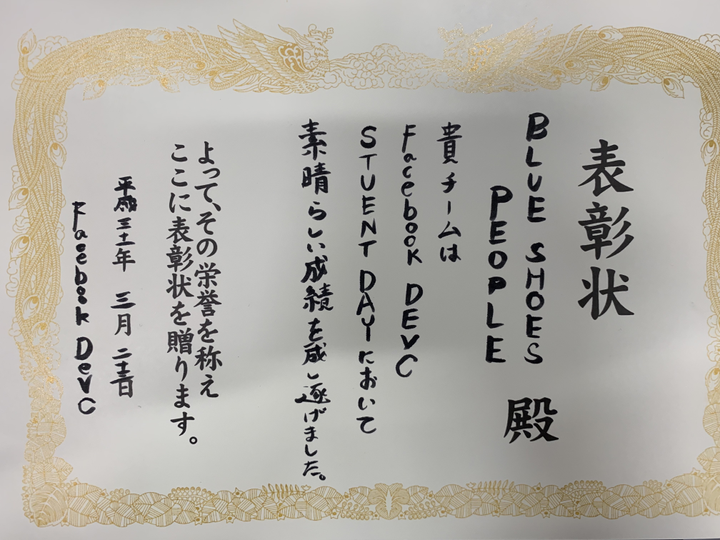 表彰状
BLUE SHOES
PEOPLE 殿
貴チームは
Facebook DEVC
STUENT DAYにおいて
素晴らしい成績を成し遂げました。
よって、その栄誉を称え
ここに表彰状を贈ります。
平成三十一年 三月 二十三日
Facebook DevC